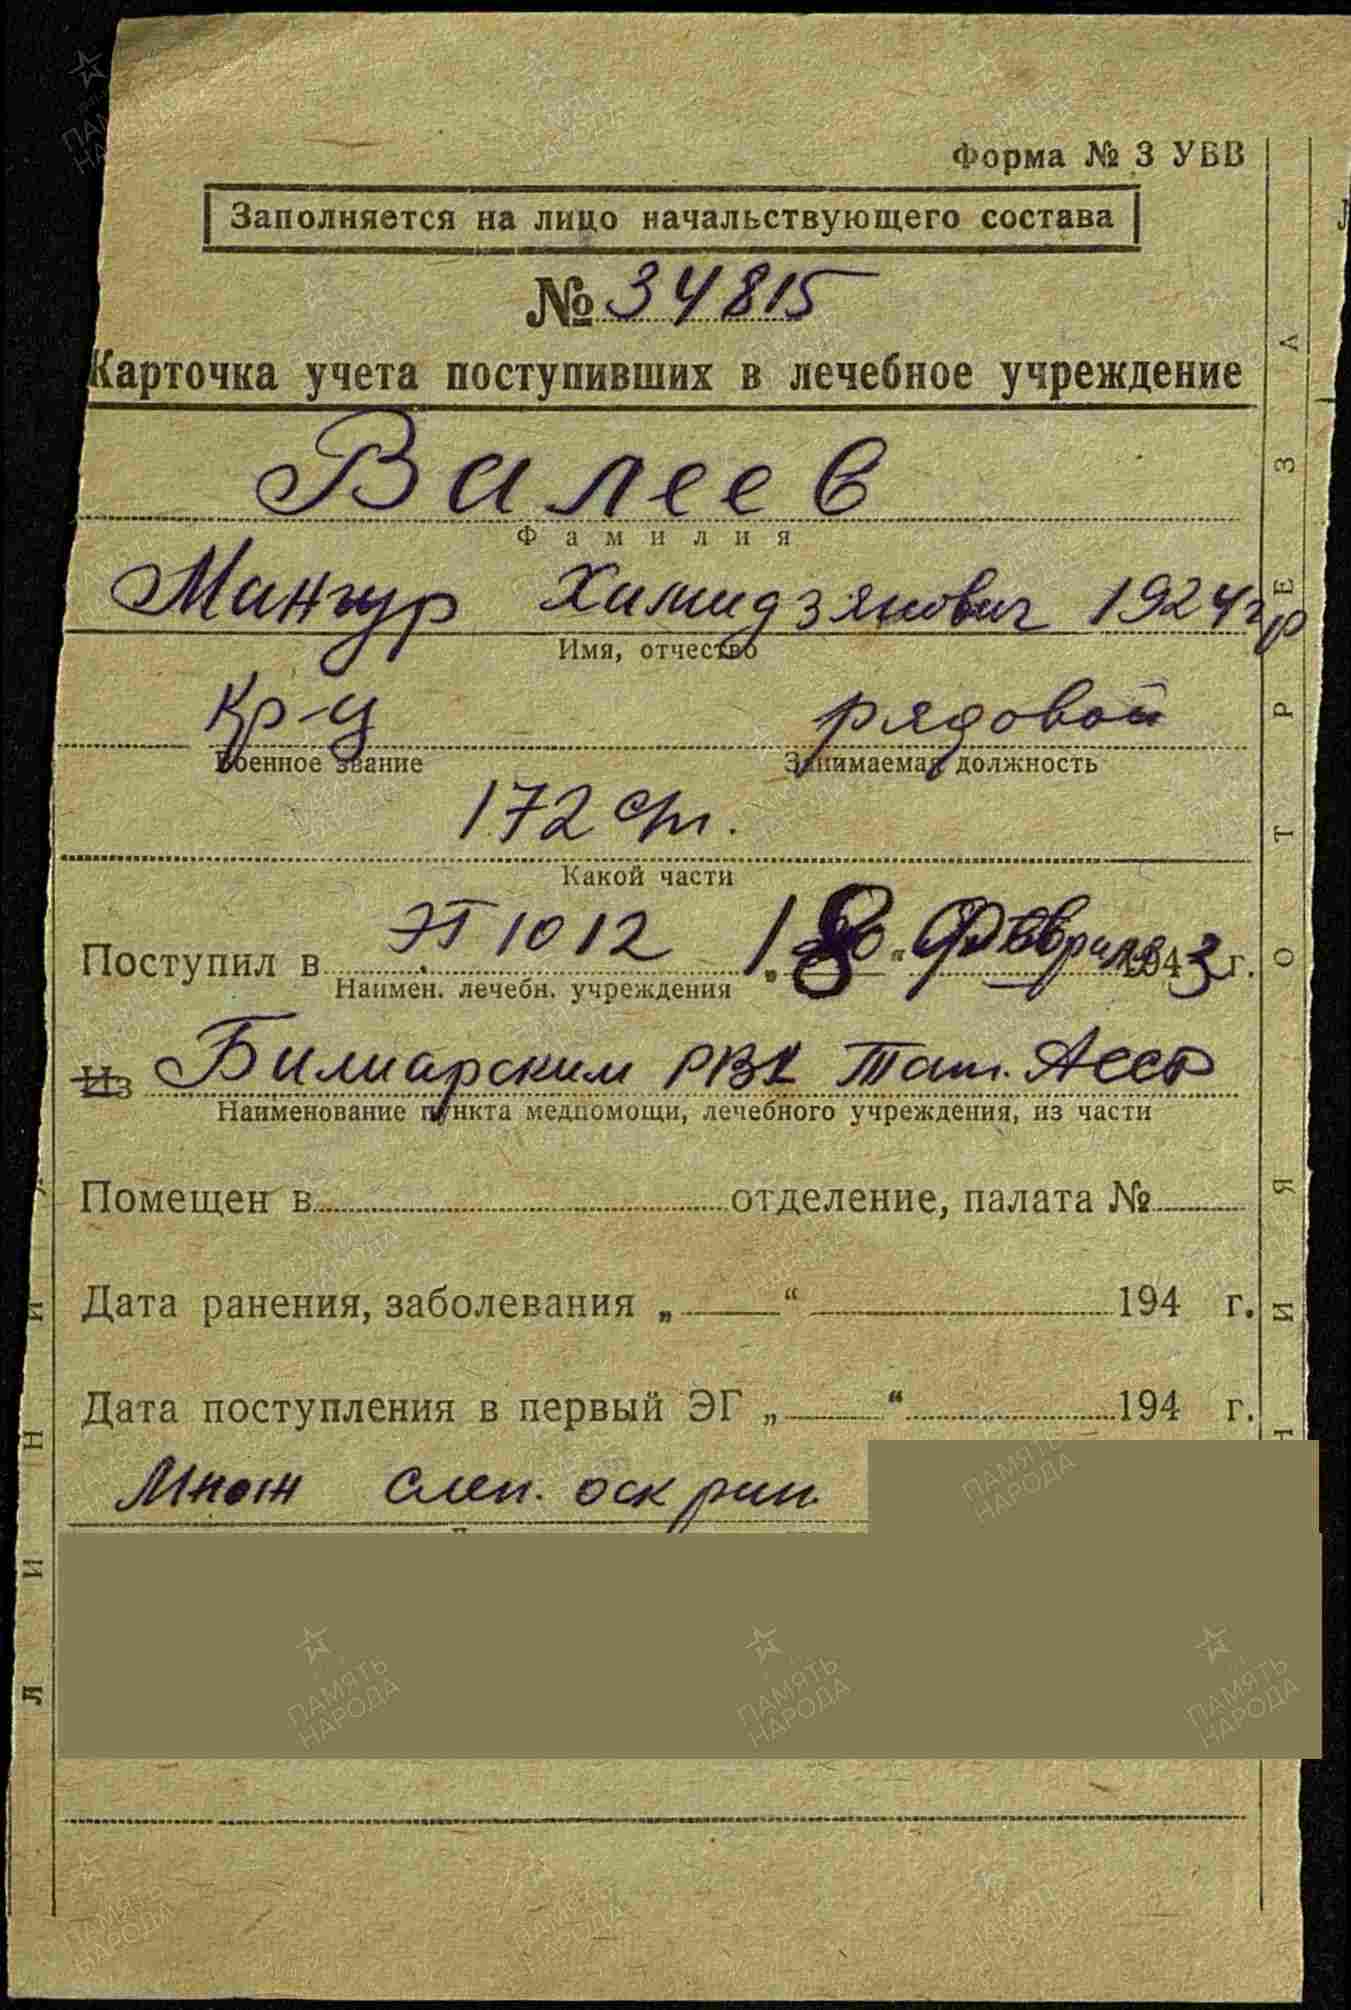 Форма № 3 УВВ
Заполняется на лицо начальствующего состава
№ 34815
Карточка учета поступивших в лечебное учреждение
Валеев
Фамилия
Хамидзянович 1924 гр
Имя, отчество
Кр-ц рядовой
Военное звание Занимаемая должность
172 сп.
Какой части
Поступил в ЭГ 1012 „18“ Февраля 1943 г.
Наимен. лечебн. учреждения
Из Билиарским РВК Тат. АССР
Наименование пункта медпомощи, лечебного учреждения, из части
Помещен в отделение, палата №
Дата ранения, заболевания „ “ 194 г.
Дата поступления в первый ЭГ „ “ 194 г.
Множ слеп. оск ран.
ЛИНИЯ ОТРЕЗА
ПАМЯТЬ НАРОДА